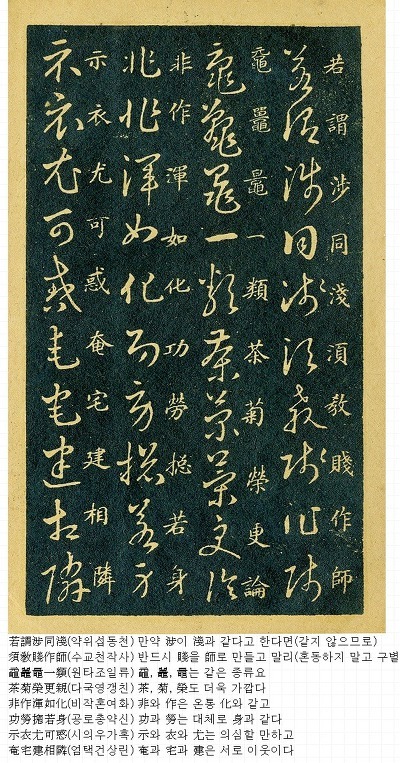 若謂涉同淺湏敎賤作師
若謂涉同淺湏敎賤作師
黿鼉鼂一類茶菊榮更論
黿鼉鼂一類茶菊榮更論
非作渾如化功勞揔若身
非作渾如化功勞揔若身
示衣尤可惑奄宅建相隣
示衣尤可惑奄宅建相隣
若謂涉同淺(약위섭동천) 만약 涉이 淺과 같다고 한다면(같지 않으므로)
須敎賤作師(수교천작사) 반드시 賤을 師로 만들고 말리(혼동하지 말고 구별
黿鼉鼂一類(원타조일류) 黿, 鼉, 鼂는 같은 종류요
茶菊榮更親(다국영경친) 茶, 菊, 榮도 더욱 가깝다
非作渾如化(비작혼여화) 非와 作은 온통 化와 같고
功勞揔若身(공로총약신) 功과 勞는 대체로 身과 같다
示衣尤可惑(시의우가혹) 示와 衣와 尤는 의심할 만하고
奄宅建相隣(엄택건상린) 奄과 宅과 建은 서로 이웃이다